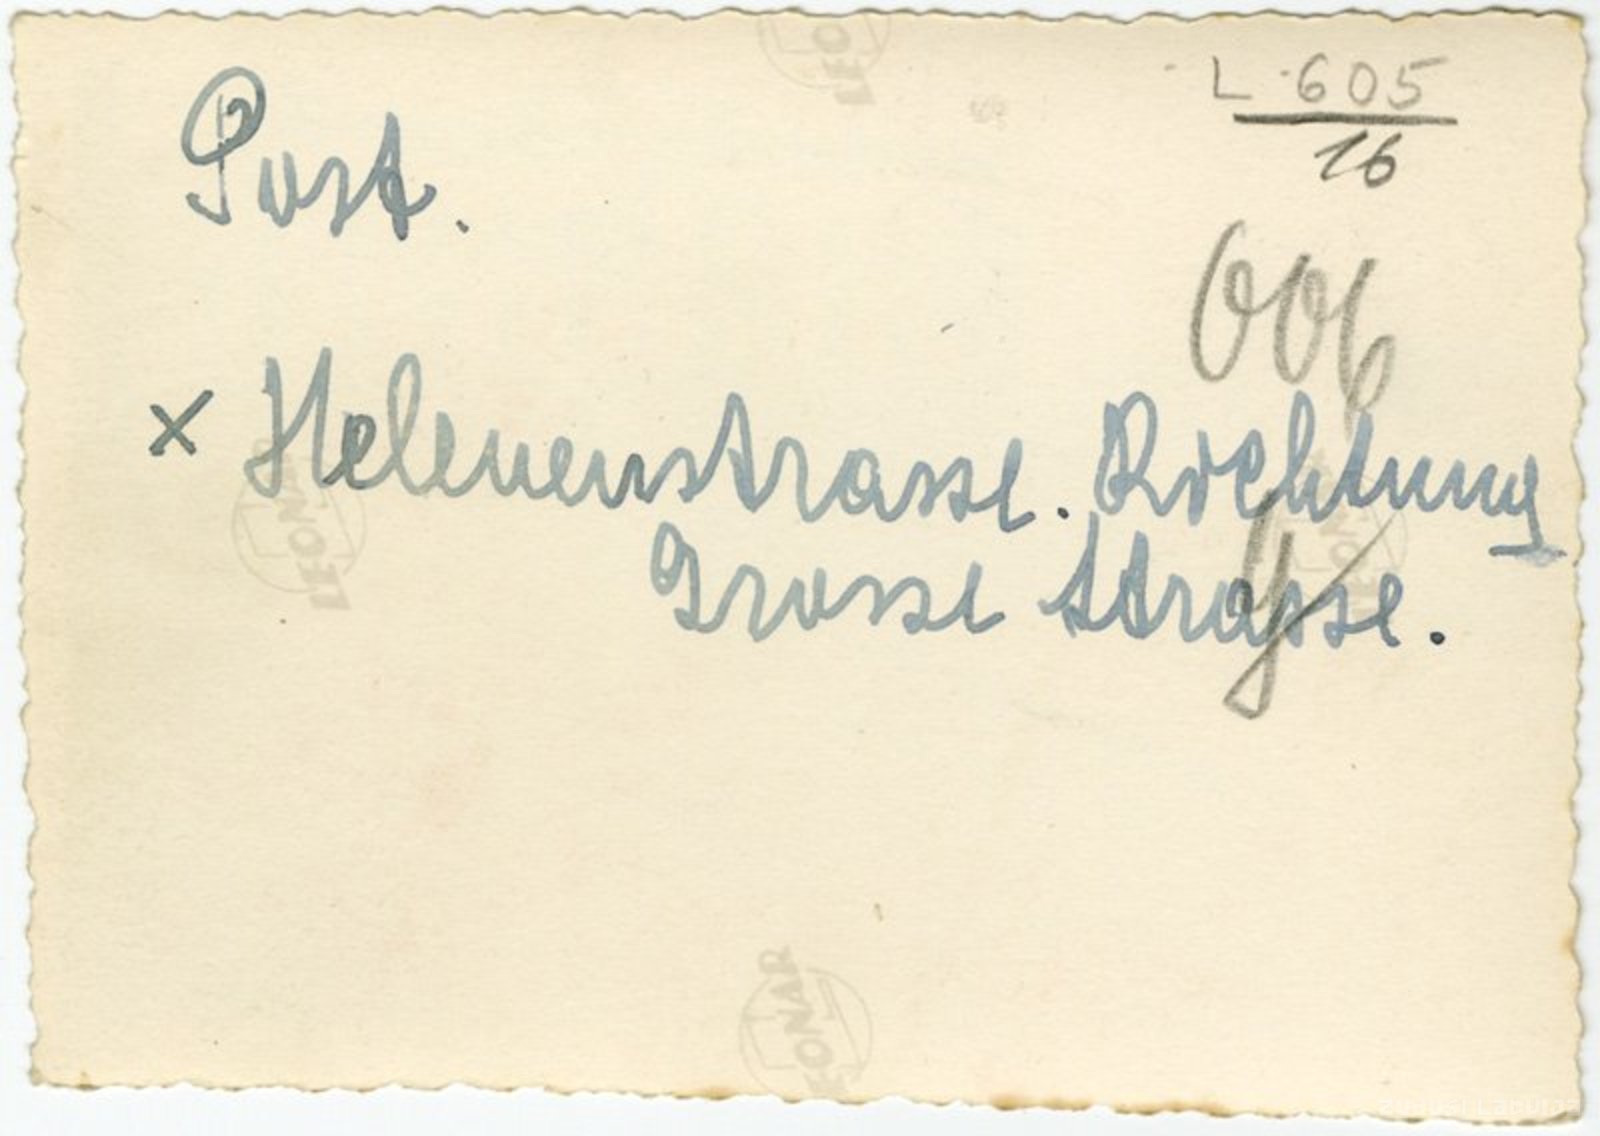 L 605
16
Post.
006
x Helenenstrasse. Richtung
Grosse Strasse.
LEONAR
LEONAR
LEONAR
LEONAR